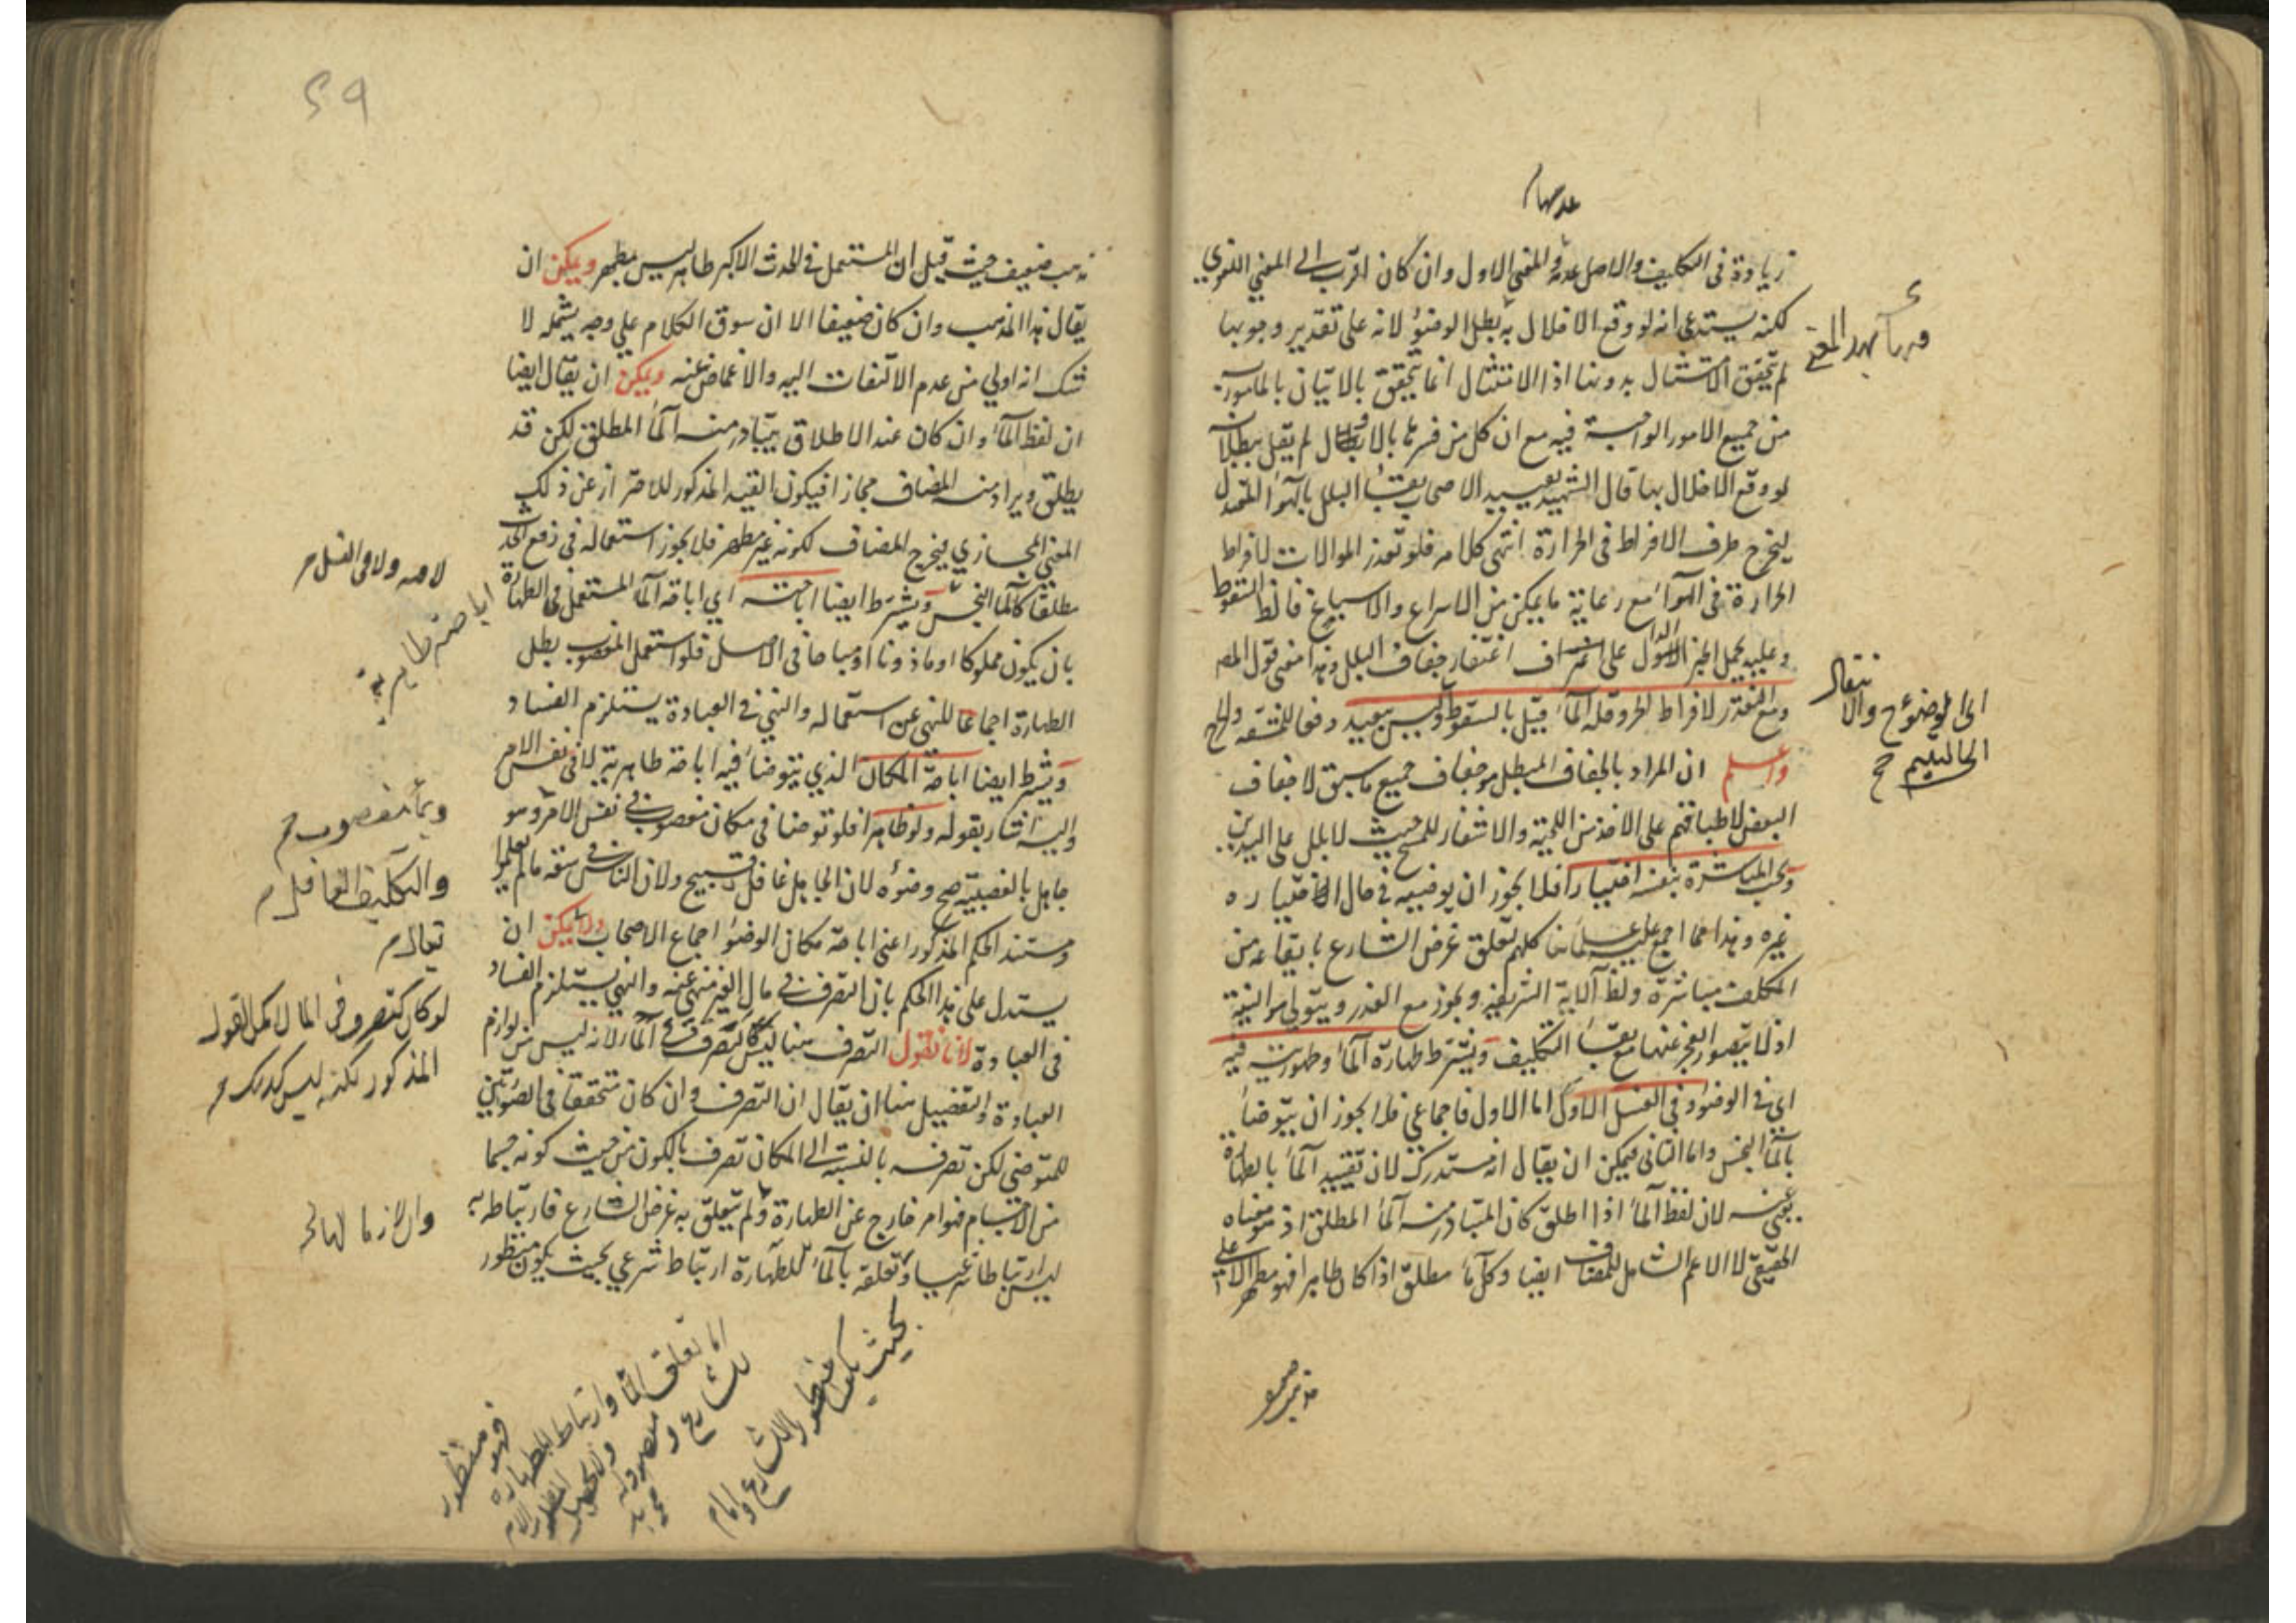 عدمها م
زيادة في التكليف والاصل عدمه والمعنى الاول وان كان اقرب الى المعنى اللغوي
لكنه يستدعي انه لو وقع الاخلال به بطل الوضوء لانه على تقدير وجوبها
لم يتحقق الامتثال بدونها اذ الامتثال انما يتحقق بالاتيان بالمأمور به
من جميع الامور الواجبة فيه مع ان كل من فسرها بالاتصال لم يقل ببطلانه
لو وقع الاخلال بها قال الشهيد تقييد الاصحاب بقاء البلل بالهواء المعتدل
ليخرج طرف الافراط في الحرارة انتهى كلامه فلو تعذر الموالات لافراط
الحرارة في الهواء مع رعاية ما يمكن من الاسراع والاسباغ فالظ السقوط
وعليه يحمل الخبر الدال على اغتفار جفاف البلل وهذا معنى قول المصـ
ومع التعذر لافراط الحر وقلة الماء قيل بالسقوط وليس ببعيد دفعا للمشقة والحرج
واعلم ان المراد بالجفاف المبطل هو جفاف جميع ما سبق لا جفاف
البعض لاطباقهم على الاخذ من اللحية والاشفار للمسح حيث لا بلل على اليدين
وتجب المباشرة بنفسه اختيارا فلا يجوز ان يوضيه في حال اختياره
غيره وهذا مما اجمع عليه علمائنا كلهم لتعلق غرض الشارع بايقاعه من
المكلف مباشرة ولظ الآية الشريفة ويجوز مع العذر ويتولى هو النية
اذ لا يتصور العجز عنها مع بقاء التكليف ويشترط طهارة الماء وطهوريته فيه
اي في الوضوء وفي الغسل اما الاول فاجماعي فلا يجوز ان يتوضأ
بالماء النجس واما الثاني فيمكن ان يقال انه مستدرك لان تقييد الماء بالطهارة
يغني عنه لان لفظ الماء اذا اطلق كان المتبادر منه الماء المطلق اذ هو معناه
الحقيقي لا الاعم الشامل للمضاف ايضا وكل ماء مطلق اذا كان طاهرا فهو مطهر الا على
والانتقال
الى الموضوع
الى التيمم صح
مذهب ضعيف
٢٩
مذهب ضعيف حيث قيل ان المستعمل في الحدث الاكبر طاهر ليس بمطهر ويمكن ان
يقال هذا المذهب وان كان ضعيفا الا ان سوق الكلام على وجه يشمله لا
شك انه اولى من عدم الالتفات اليه والاغماض عنه ويمكن ان يقال ايضا
ان لفظ الماء وان كان عند الاطلاق يتبادر منه الماء المطلق لكن قد
يطلق ويراد منه المضاف مجازا فيكون القيد المذكور للاحتراز عن ذلك
المعنى المجازي ليخرج المضاف لكونه غير مطهر فلا يجوز استعماله في رفع الحدث
مطلقا كالماء النجس ويشترط ايضا اباحته اي اباحة الماء المستعمل في الطهارة
بان يكون مملوكا او ماذونا او مباحا في الاصل فلو استعمل المغصوب بطل
الطهارة اجماعا للنهي عن استعماله والنهي في العبادة يستلزم الفساد
ويشترط ايضا اباحة المكان الذي يتوضأ فيه اباحة ظاهرية لا في نفس الامر
واليه اشار بقوله ولو ظاهرا فلو توضا في مكان مغصوب في نفس الامر وهو
جاهل بالغصبية صح وضوءه لان الجاهل غافل قبيح ولان الناس في سعة مالم يعلموا
ومستند الحكم المذكور اعني اباحة مكان الوضوء اجماع الاصحاب ولا يمكن ان
يستدل على هذا الحكم بان التصرف في مال الغير منهي عنه والنهي يستلزم الفساد
في العبادة لانا نقول التصرف هنا ليس كالتصرف في الماء لانه ليس من لوازم
العبادة والتفصيل هنا ان يقال ان التصرف وان كان متحققا في الصورتين
للمتوضي لكن تصرفه بالنسبة الى المكان تصرف بالكون من حيث كونه جسما
من الاجسام فهو امر خارج عن الطهارة ولم يتعلق به غرض الشارع فارتباطه به
ليس ارتباطا شرعيا وتعلقه بالماء للطهارة ارتباط شرعي بحيث يكون منظور
اباحة ظاهرية
وبماء مغصوب م
والتكليف الغافل م
تعالى م
لو كان كتصرفه في الماء لامكن القول
المذكور لكنه ليس كذلك م
والازما لها
اما تعلق الماء وارتباط للطهارة فهو منظور
بحيث يكون منظورا للشارع